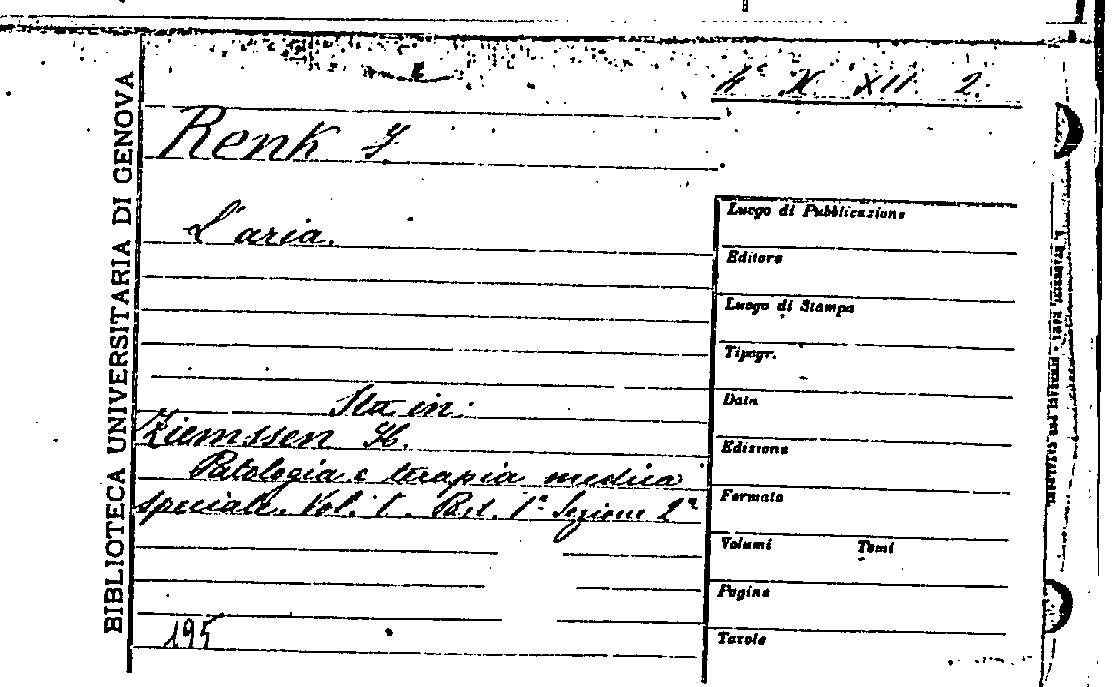 X. XII. 2.
Renk F
L'aria.
Sta in:
Ziemssen H.
Patologia e terapia medica
speciale. Vol. I. Part. 1ª Sezione 2ª
195
BIBLIOTECA UNIVERSITARIA DI GENOVA
Luogo di Pubblicazione
Editore
Luogo di Stampa
Tipogr.
Data
Edizione
Formato
Volumi Tomi
Pagine
Tavole